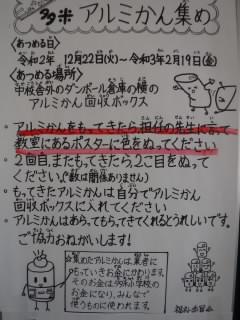 多米 アルミかん集め
<あつめる日>
令和2年 12月22日(火)～令和3年2月19日(金)
<あつめる場所>
中校舎外のダンボール倉庫の横の
アルミかん 回収ボックス
・アルミかんをもってきたら、担任の先生に言って
教室にあるポスターに色をぬってください
・2回目、またもってきたら2こ目をぬって
ください。(数は関係ありません)
・もってきたアルミかんは自分でアルミかん
回収ボックスに入れてください
・アルミかんはあらってもってきてくれるとうれしいです。
ご協力おねがいします!
☆集めたアルミかんは、業者に
もっていきお金にかわります。
そのお金は多米小学校の
お金になり、みんなで
使うものに使われます。